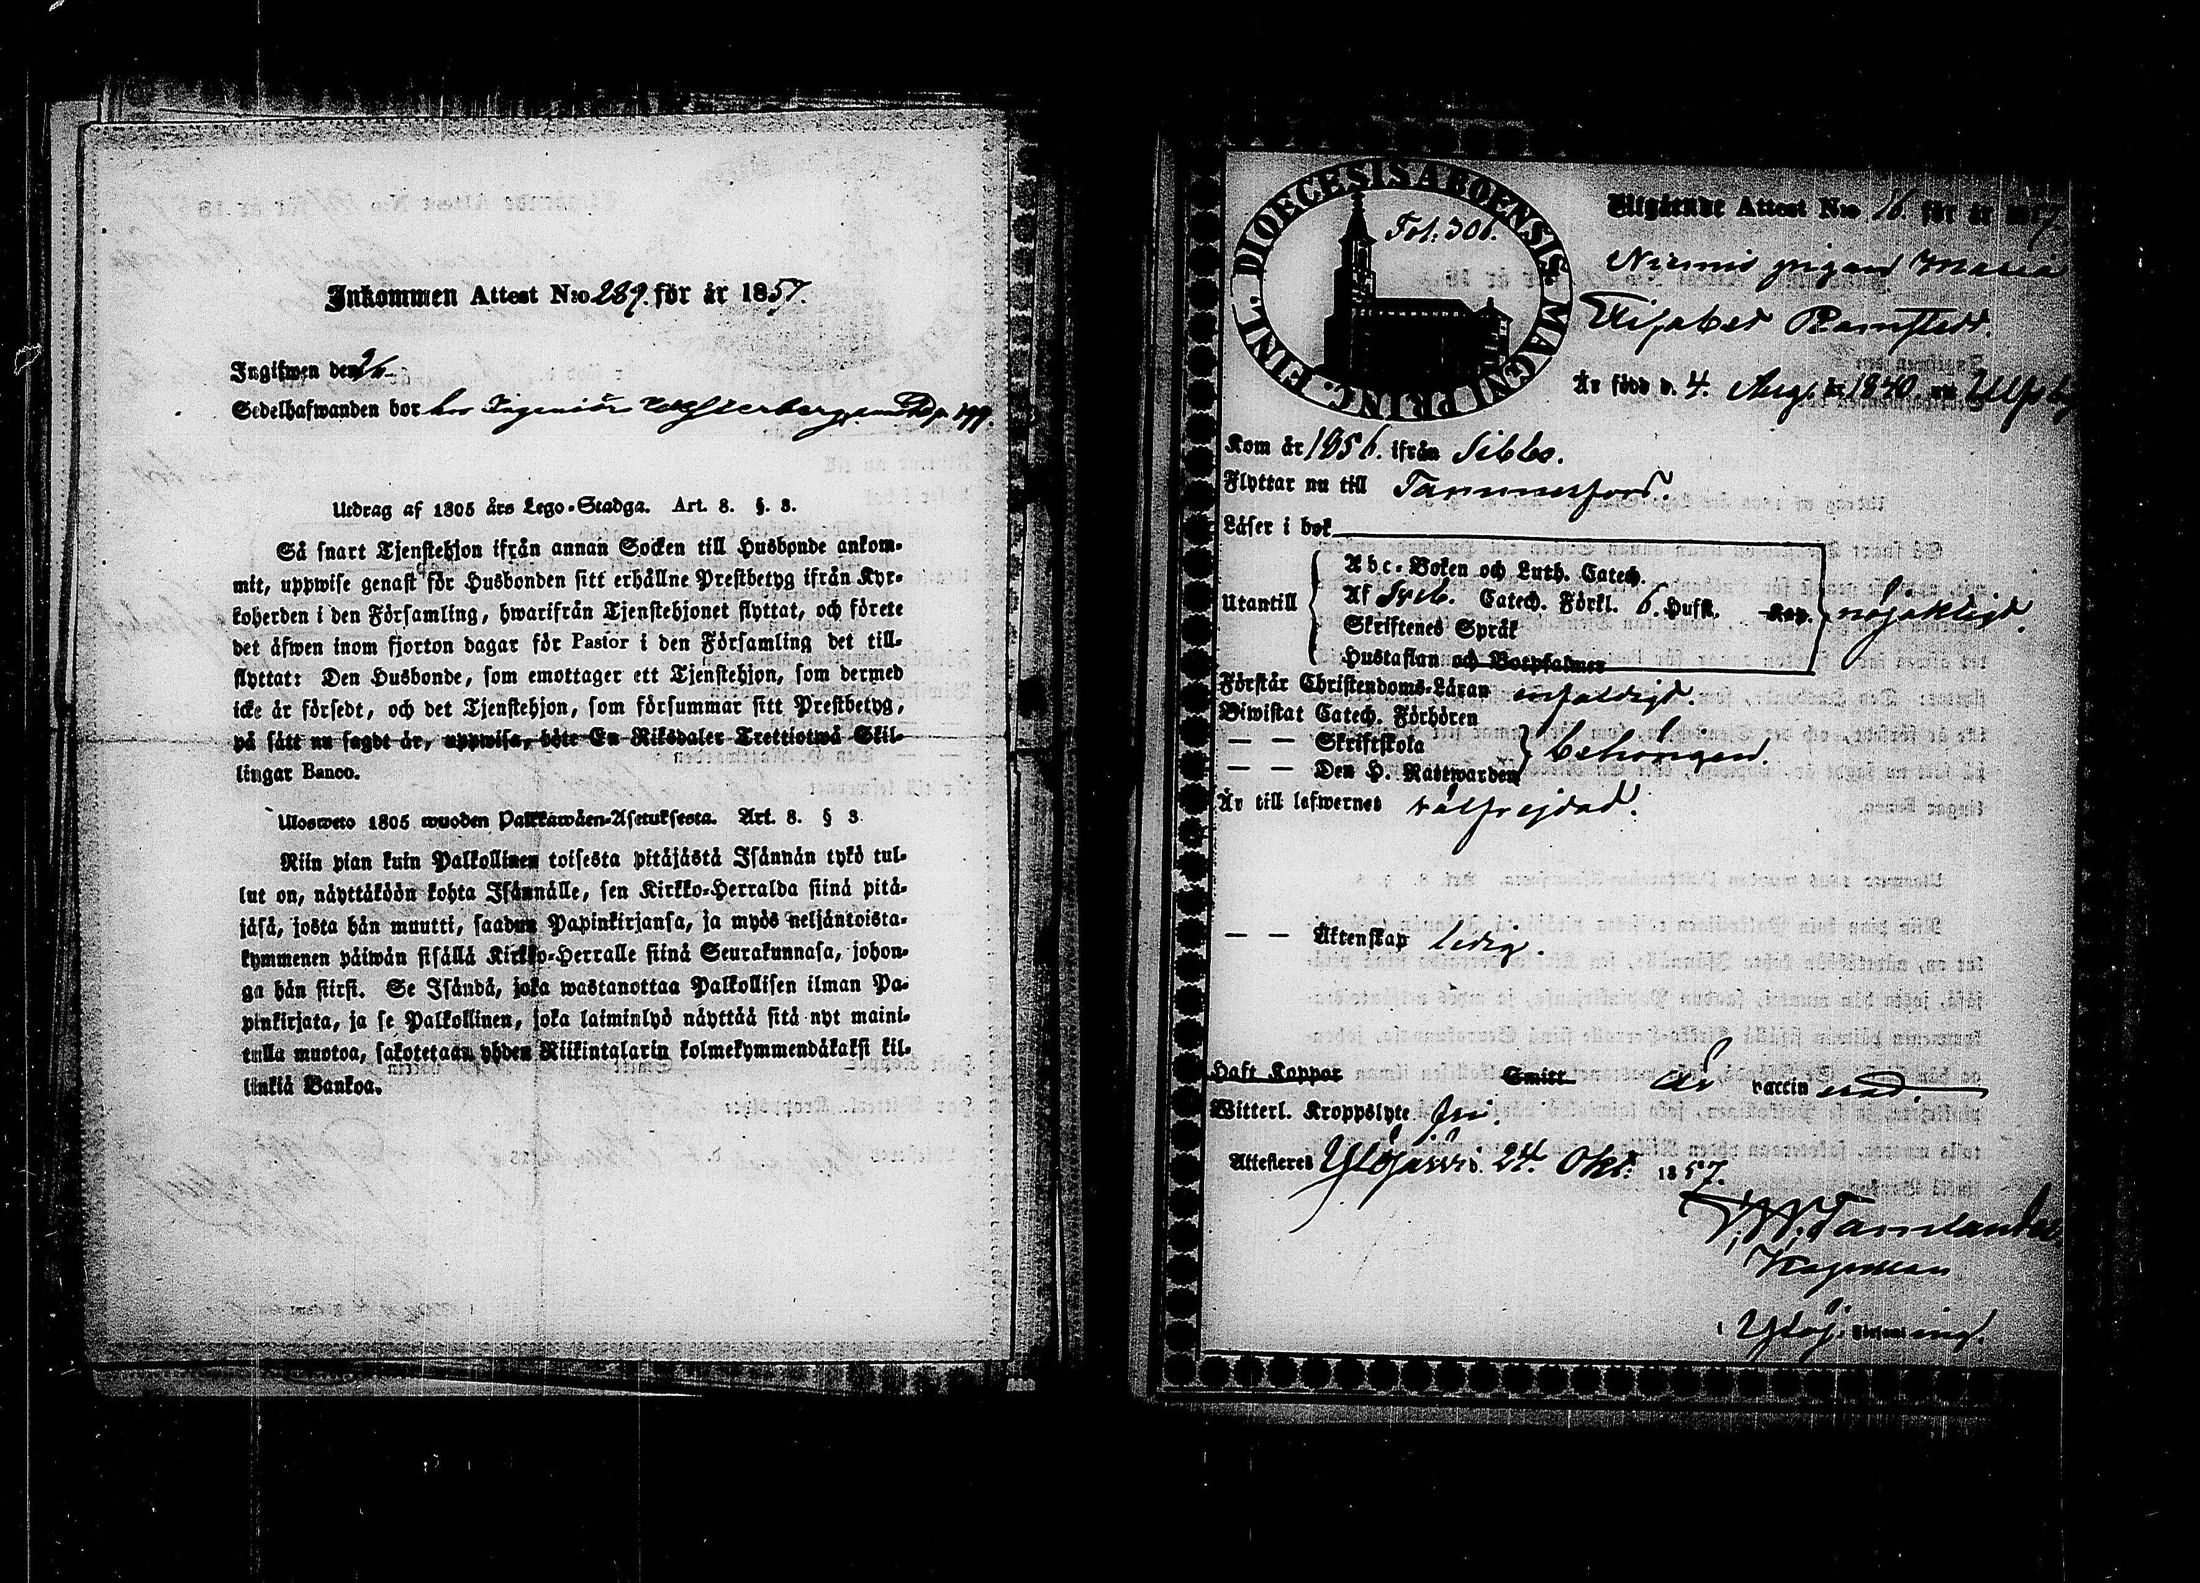 Inkommen Attest N:o 289. för år 1857.
Ingifwen den
Sedelhafwanden bor hos Ingeniör
Utdrag af 1805 års Lego-Stadga. Art. 8. §. 3.
Så snart Tjenstehjon ifrån annan Socken till Husbonde ankom-
mit, uppwise genast för Husbonden sitt erhållne Prestbetyg ifrån Kyr-
koherden i den Församling, hwarifrån Tjenstehjonet flyttat, och förete
det äfwen inom fjorton dagar för Pastor i den Församling det till-
flyttat: Den Husbonde, som emottager ett Tjenstehjon, som dermed
icke är försedt, och det Tjenstehjon, som försummar sitt Prestbetyg,
på sätt nu sagdt är, uppwisa, böte En Riksdaler Trettiotwå Skil-
lingar Banco.
Ulosweto 1805 wuoden Palkkawäen-Asetuksesta. Art. 8. § 3
Niin pian kuin Palkollinen toisesta pitäjästä Isännän tykö tul-
lut on, näyttäköön kohta Isännälle, sen Kirkko-Herralda siinä pitä-
jäsä, josta hän muutti, saadun Papinkirjansa, ja myös neljäntoista-
kymmenen päiwän sisällä Kirkko-Herralle siinä Seurakunnasa, johon-
ga hän siirsi. Se Isändä, joka wastanottaa Palkollisen ilman Pa-
pinkirjata, ja se Palkollinen, joka laiminlyö näyttää sitä nyt maini-
tulla muotoa, sakotetaan yhden Riikintalarin kolmekymmendäkaksi kil-
linkiä Bankoa.
DIOECESIS ABOENSIS MAGNI PRINC. FINL.
Fol. 306.
Utgående Attest N:o 16. för år 1857.
pigan Maria
Elisabet Ramstedt.
Är född d. 4. Aug. år 1840. uti Ulfsby
Kom år 1856. ifrån Sibbo.
Flyttar nu till Tammerfors.
Läser i bok
Utantill
Abc-Boken och Luth. Catech.
Af Sveb. Catech. Förkl. 6. Hufst. Kap.
Skriftenes Språk
Hustaflan och Botpsalmer
nöjaktigt.
Förstår Christendoms-Läran enfaldigt.
Biwistat Catech. Förhören
— — Skriftskola
— — Den H. Nattwarden
behörigen.
Är till lefwernet välfrejdad.
— — Äktenskap ledig.
Haft Koppor Smitt Är vaccin erad.
Witterl. Kroppslyte fri.
Attesteras Ylöjärvi d. 24. Okt. 1857.
Tamelander
Kapellan
i Ylöj. Församl ing.